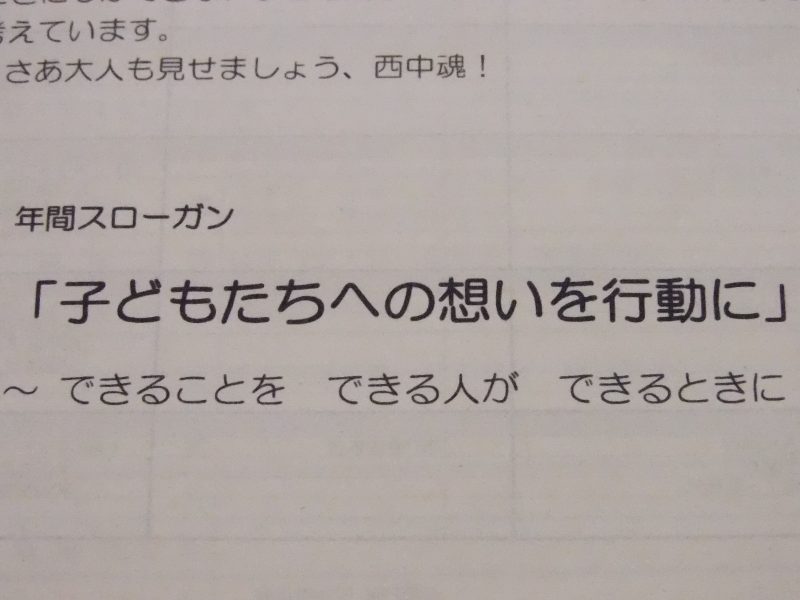 考えています。
さあ大人も見せましょう、西中魂！
年間スローガン
「子どもたちへの想いを行動に」
～ できることを　できる人が　できるときに